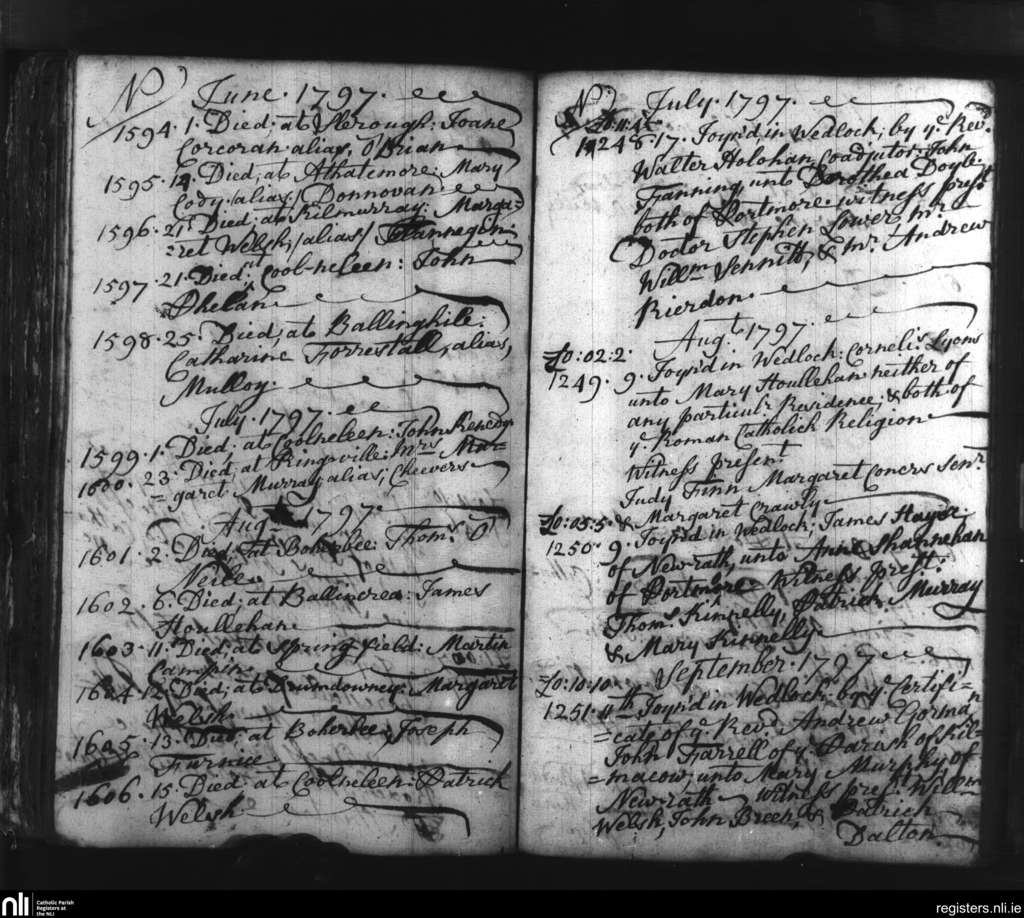 No
June 1797.
1594. 1. Died, at Slerough: Joane
Corcoran alias, O'Brian
1595. 12. Died, at Athatemore: Mary
Cody /alias/ Donnovan
1596. 21st Died, at Kilmurray: Marga=
=ret Welsh, /alias/ Flannegin
1597. 21. Died at Cool-neleen: John
Phelan
1598. 25. Died, at Ballinghile:
Catharine Forrestall, alias,
Mulloy.
July. 1797.
1599. 1. Died, at Coolneleen: John Kenedy
1600. 23. Died, at Ringville: Mrs Mar=
=garet Murray alias, Cheevers
Augt 1797.
1601. 2. Died, at Boherbee: Thoms O
Neile
1602. 6. Died, at Ballincrea: James
Houllehan
1603. 11. Died, at Springfield: Martin
Campin
1604. 12. Died, at Drumdowney: Margaret
Welsh
1605. 13. Died, at Boherbee: Joseph
Furnice
1606. 15. Died, at Coolneleen: Patrick
Welsh
No
July. 1797.
1248. 17. Joyn'd in Wedlock; by ye Revd.
Walter Holohan Coadjutor: John
Fanning unto Dorothea Doyle
both of Portmore witness prest
Doctor Stephen Lower, mr.
Willm Sennitt, & mr. Andrew
Rierdon.
Augt 1797.
£0:02:2.
1249. 9. Joyn'd in Wedlock: Cornelis Lyons
unto Mary Houllehan neither of
any particulr Residence; & both of
ye Roman Catholick Religion
Witness present
Judy Finn Margaret Coners senr
& Margaret Crawly
£0:05:5.
1250. 9. Joyn'd in Wedlock, James Hayse
of Newrath, unto Anne Shannehan
of Portmore Witness prest:
Thoms Kinnelly, Patrick Murray
& Mary Kinnelly
September. 1797
£0:10:10.
1251. 11th Joyn'd in Wedlock: by ye Certifi=
=cate of ye Revd. Andrew Gorma
John Farrell of ye Parish of Kil=
=macow; unto Mary Murphy of
Newrath Witness prest Willm
Welsh, John Breen, & Patrick
Dalton
nli
Catholic Parish
Registers at
the NLI
registers.nli.ie